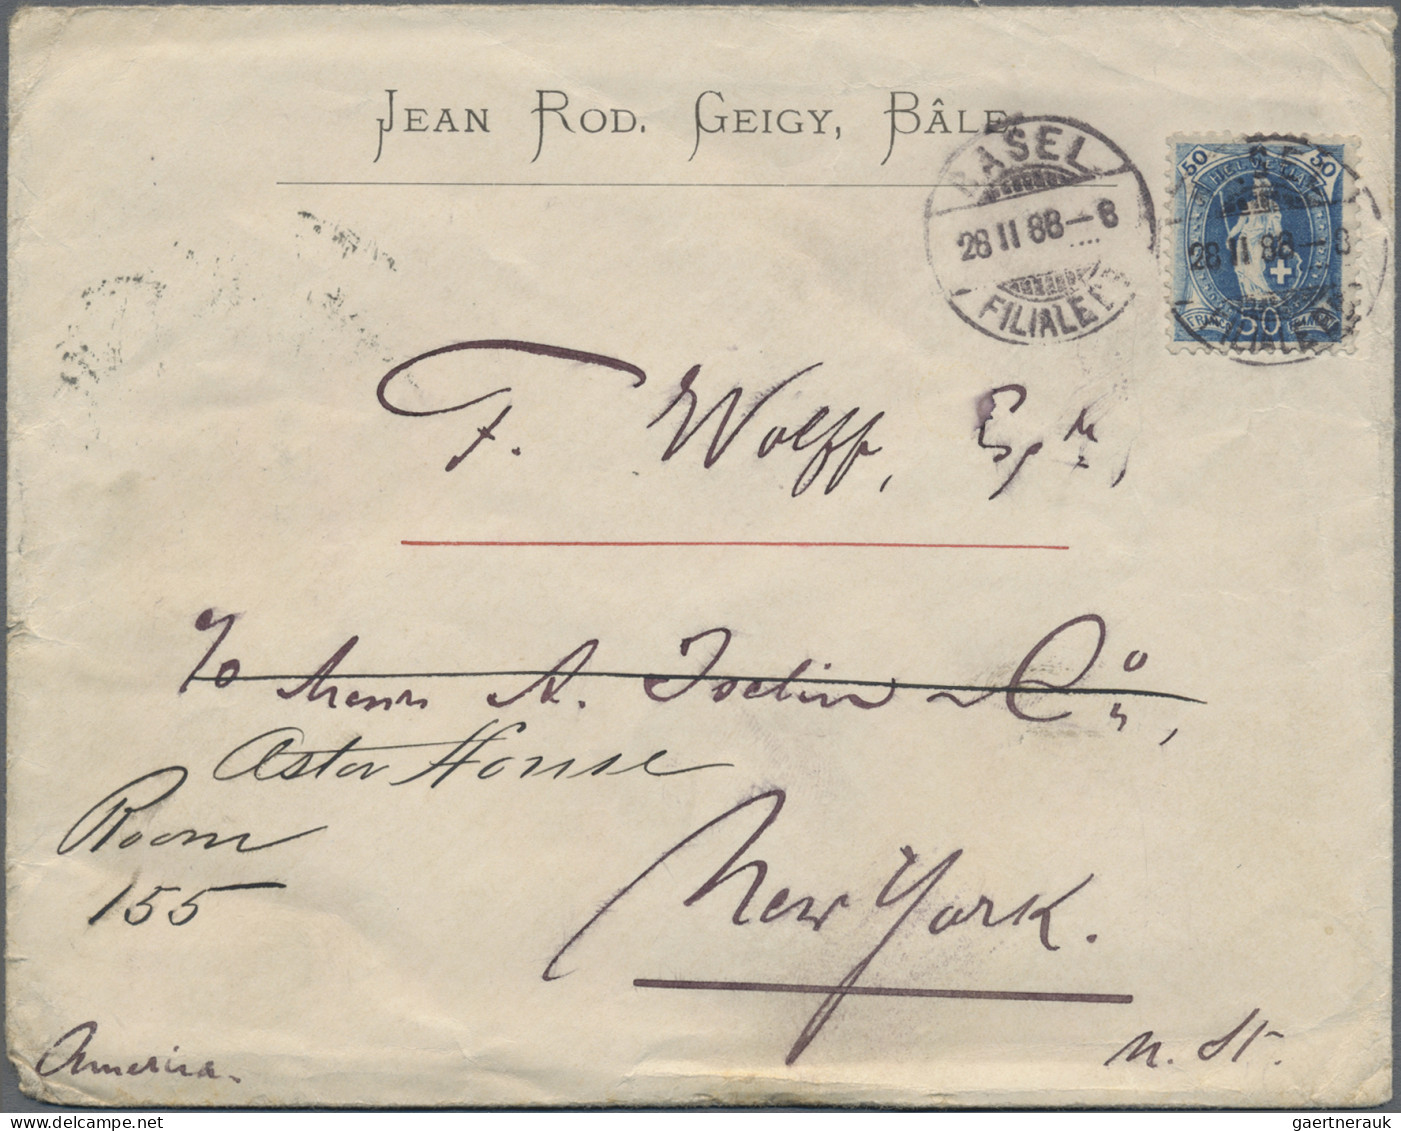 JEAN ROD. GEIGY, BÂLE.
BASEL
28 II 88–8
FILIALE
50 HELVETIA 50
BASEL
28 II 88–8
50
FILIALE
F. Wolff, Esqre,
c/o Messrs A. Joclin & Co,
Astor House
Room
155
New York.
America.
N. St.
gaertnerauk